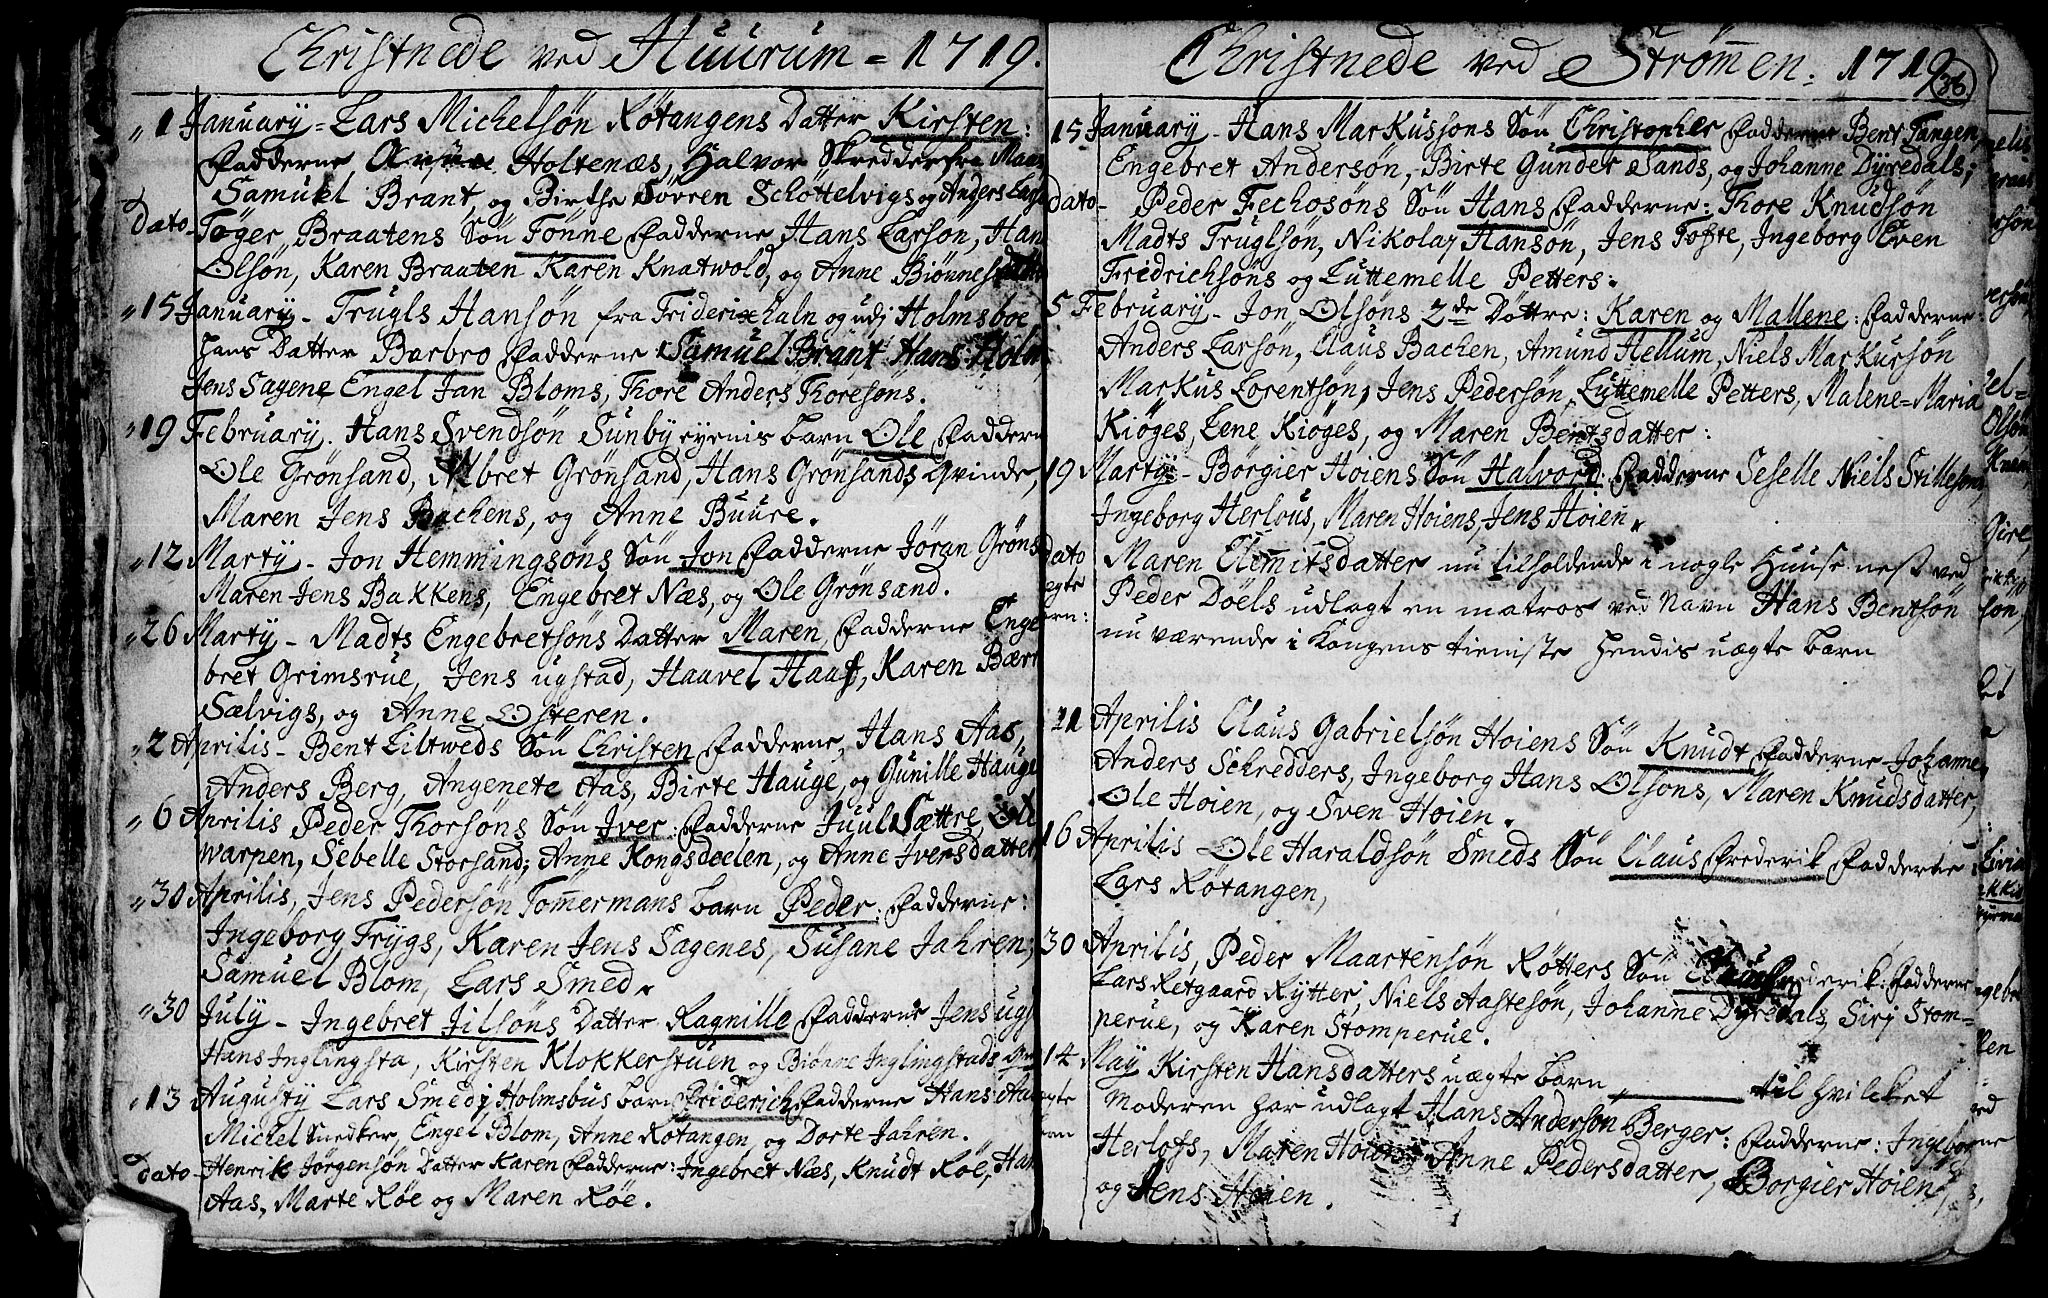 Christnede ved Huurum = 1719.
„ 1 January = Lars Michelsøn Røtangens Datter Kirsten:
Fadderne Holtenæs, Halvor Skredder fra
Samuel Brant, og Birthe Søvren Schøttelvigs og Anders
Dato - Tøger Braatens Søn Tønne Fadderne Hans Larsøn, Han
Olsøn, Karen Braaten Karen Knatwold, og Anne
„ 15 January - Trugls Hansøn fra Friderixhaln og udj Holmsboe
hans Datter Barbro Fadderne Samuel Brant Hans Holm
Jens Sagene Engel Jan Bloms, Thore Anders Thoresøns.
„ 19 February. Hans Svendsøn Sunby eyenis barn Ole Faddern
Ole Grønsand, Albret Grønsand, Hans Grønsands Qvinde,
Maren Jens Bachens, og Anne Buure.
„ 12 Marty - Jon Hemmingsøns Søn Jon Fadderne Jøran Grøns
Maren Jens Bakkens, Engebret Næs, og Ole Grønsand.
„ 26 Marty - Madts Engebretsøns Datter Maren Fadderne Enge
bret Grimsrue, Jens ugstad, Haavel Haa, Karen Bært
Sælvigs, og Anne Østeren.
„ 2 Aprilis - Bent Liltweds Søn Christen Fadderne, Hans Aas,
Anders Berg, Angenete Aas, Birte Hauge, og Gunille Hauge
„ 6 Aprilis Peder Thorsøns Søn Iver: Fadderne Juul Sættre, Ole
warpen, Sebelle Storsand; Anne Kongsdeelen, og Anne Iversdatter
„ 30 Aprilis, Jens Pedersøn Tom̄ermans barn Peder: Fadderne:
Ingeborg Trygs, Karen Jens Sagenes, Susane Jahren;
Samuel Blom, Lars Smed.
„ 30 July - Ingebret Jilsøns Datter Ragnille Fadderne Jens ugs
Hans Inglingsta, Kirsten Klokkerstuen og Biønne Inglingstads
„ 13 Augusty Lars Smed j Holmsbus barn Friderich Fadderne Hans Aa
Michel Snedker, Engel Blom, Anne Røtangen, og Dorte Jahren.
dato - Henrik Jørgensøn Datter Karen Fadderne: Ingebret Næs, Knudt Røe, Han
Aas, Marte Røe og Maren Røe.
Christnede ved Strøm̄en: 1719
36.
15 January - Hans Markussøns Søn Christopher Fadderne Bent Tangen,
Engebret Andersøn, Birte Gunder Sands, og Johanne Dyredals;
dato - Peder Fechosøns Søn Hans Fadderne: Thore Knudsøn
Madts Truglsøn, Nikolay Hansøn, Jens Tofte, Ingeborg Even
Fridrichsøns og Luttemelle Petters:
5 February - Jon Olsøns 2de Døttre: Karen og Mallene: Fadderne:
Anders Larsøn, Claus Bachen, Amund Hellum, Niels Markursøn
Markus Lorentsøn, Jens Pedersøn, Luttemelle Petters, Malene=Maria
Kiøges, Lene Kiøges, og Maren Bentsdatter:
19 Marty - Børgier Høiens Søn Halvord: Fadderne Seselle Niels Stillesøns,
Ingeborg Herlous, Maren Høiens, Jens Høien.
dato Maren Clem̄itsdatter nu tilholdende i nogle Huuse nest ved
egte Peder Døels udlagt en matros ved Navn Hans Bentsøn
ørn: nu værende i Kongens tieniste hendis uægte barn
21 Aprilis Claus Gabrielsøn Høiens Søn Knudt Fadderne Johanne
Anders Schredders, Ingeborg Hans Olsøns, Maren Knudsdatter,
Ole Høien, og Sven Høien.
16 Aprilis Ole Haraldsøn Smeds Søn Claus Frederik Fadderne
Lars Røtangen,
30 Aprilis, Peder Maartensøn Røtters Søn Fadderne
Lars Retgaard Rytter; Niels Aastesøn, Johanne Dyredals, Sirj Stom=
perue, og Karen Stomperue.
14 May Kirsten Hansdatters uægte barn ______ til hvilcket
Moderen har udlagt Hans Andersøn Berger: Fadderne: Ingeborg
Herlofs, Maren Høiens, Anne Pedersdatter, Børgier Høien,
og Jens Høien.